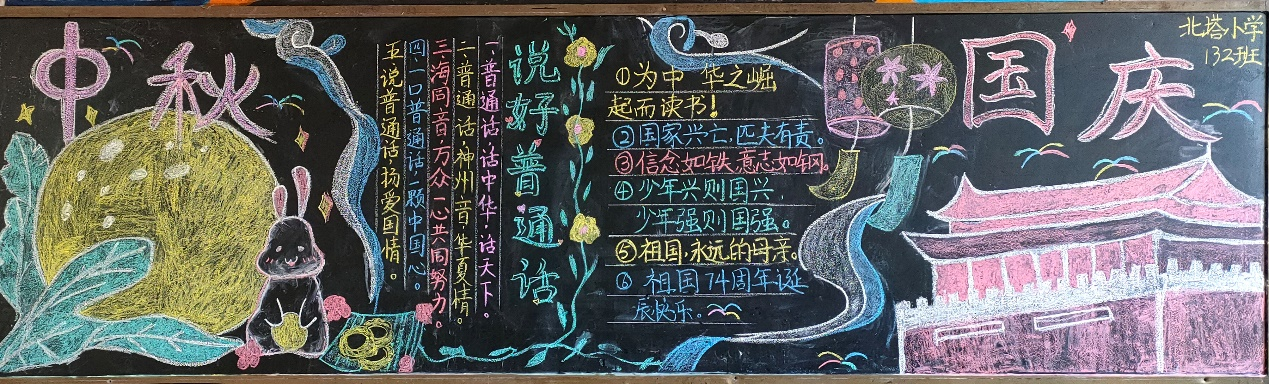 中秋
说好普通话
一、普通话,话中华,话天下。
二、普通话,神州音,华夏情。
三海同音万众一心共同努力。
四、一口普通话,一颗中国心。
五说普通话,扬爱国情。
①为中华之崛
起而读书!
②国家兴亡,匹夫有责。
③信念如铁,意志如钢。
④少年兴则国兴,
少年强则国强。
⑤祖国,永远的母亲。
⑥祖国74周年诞
辰快乐。
国庆
北塔小学
132班